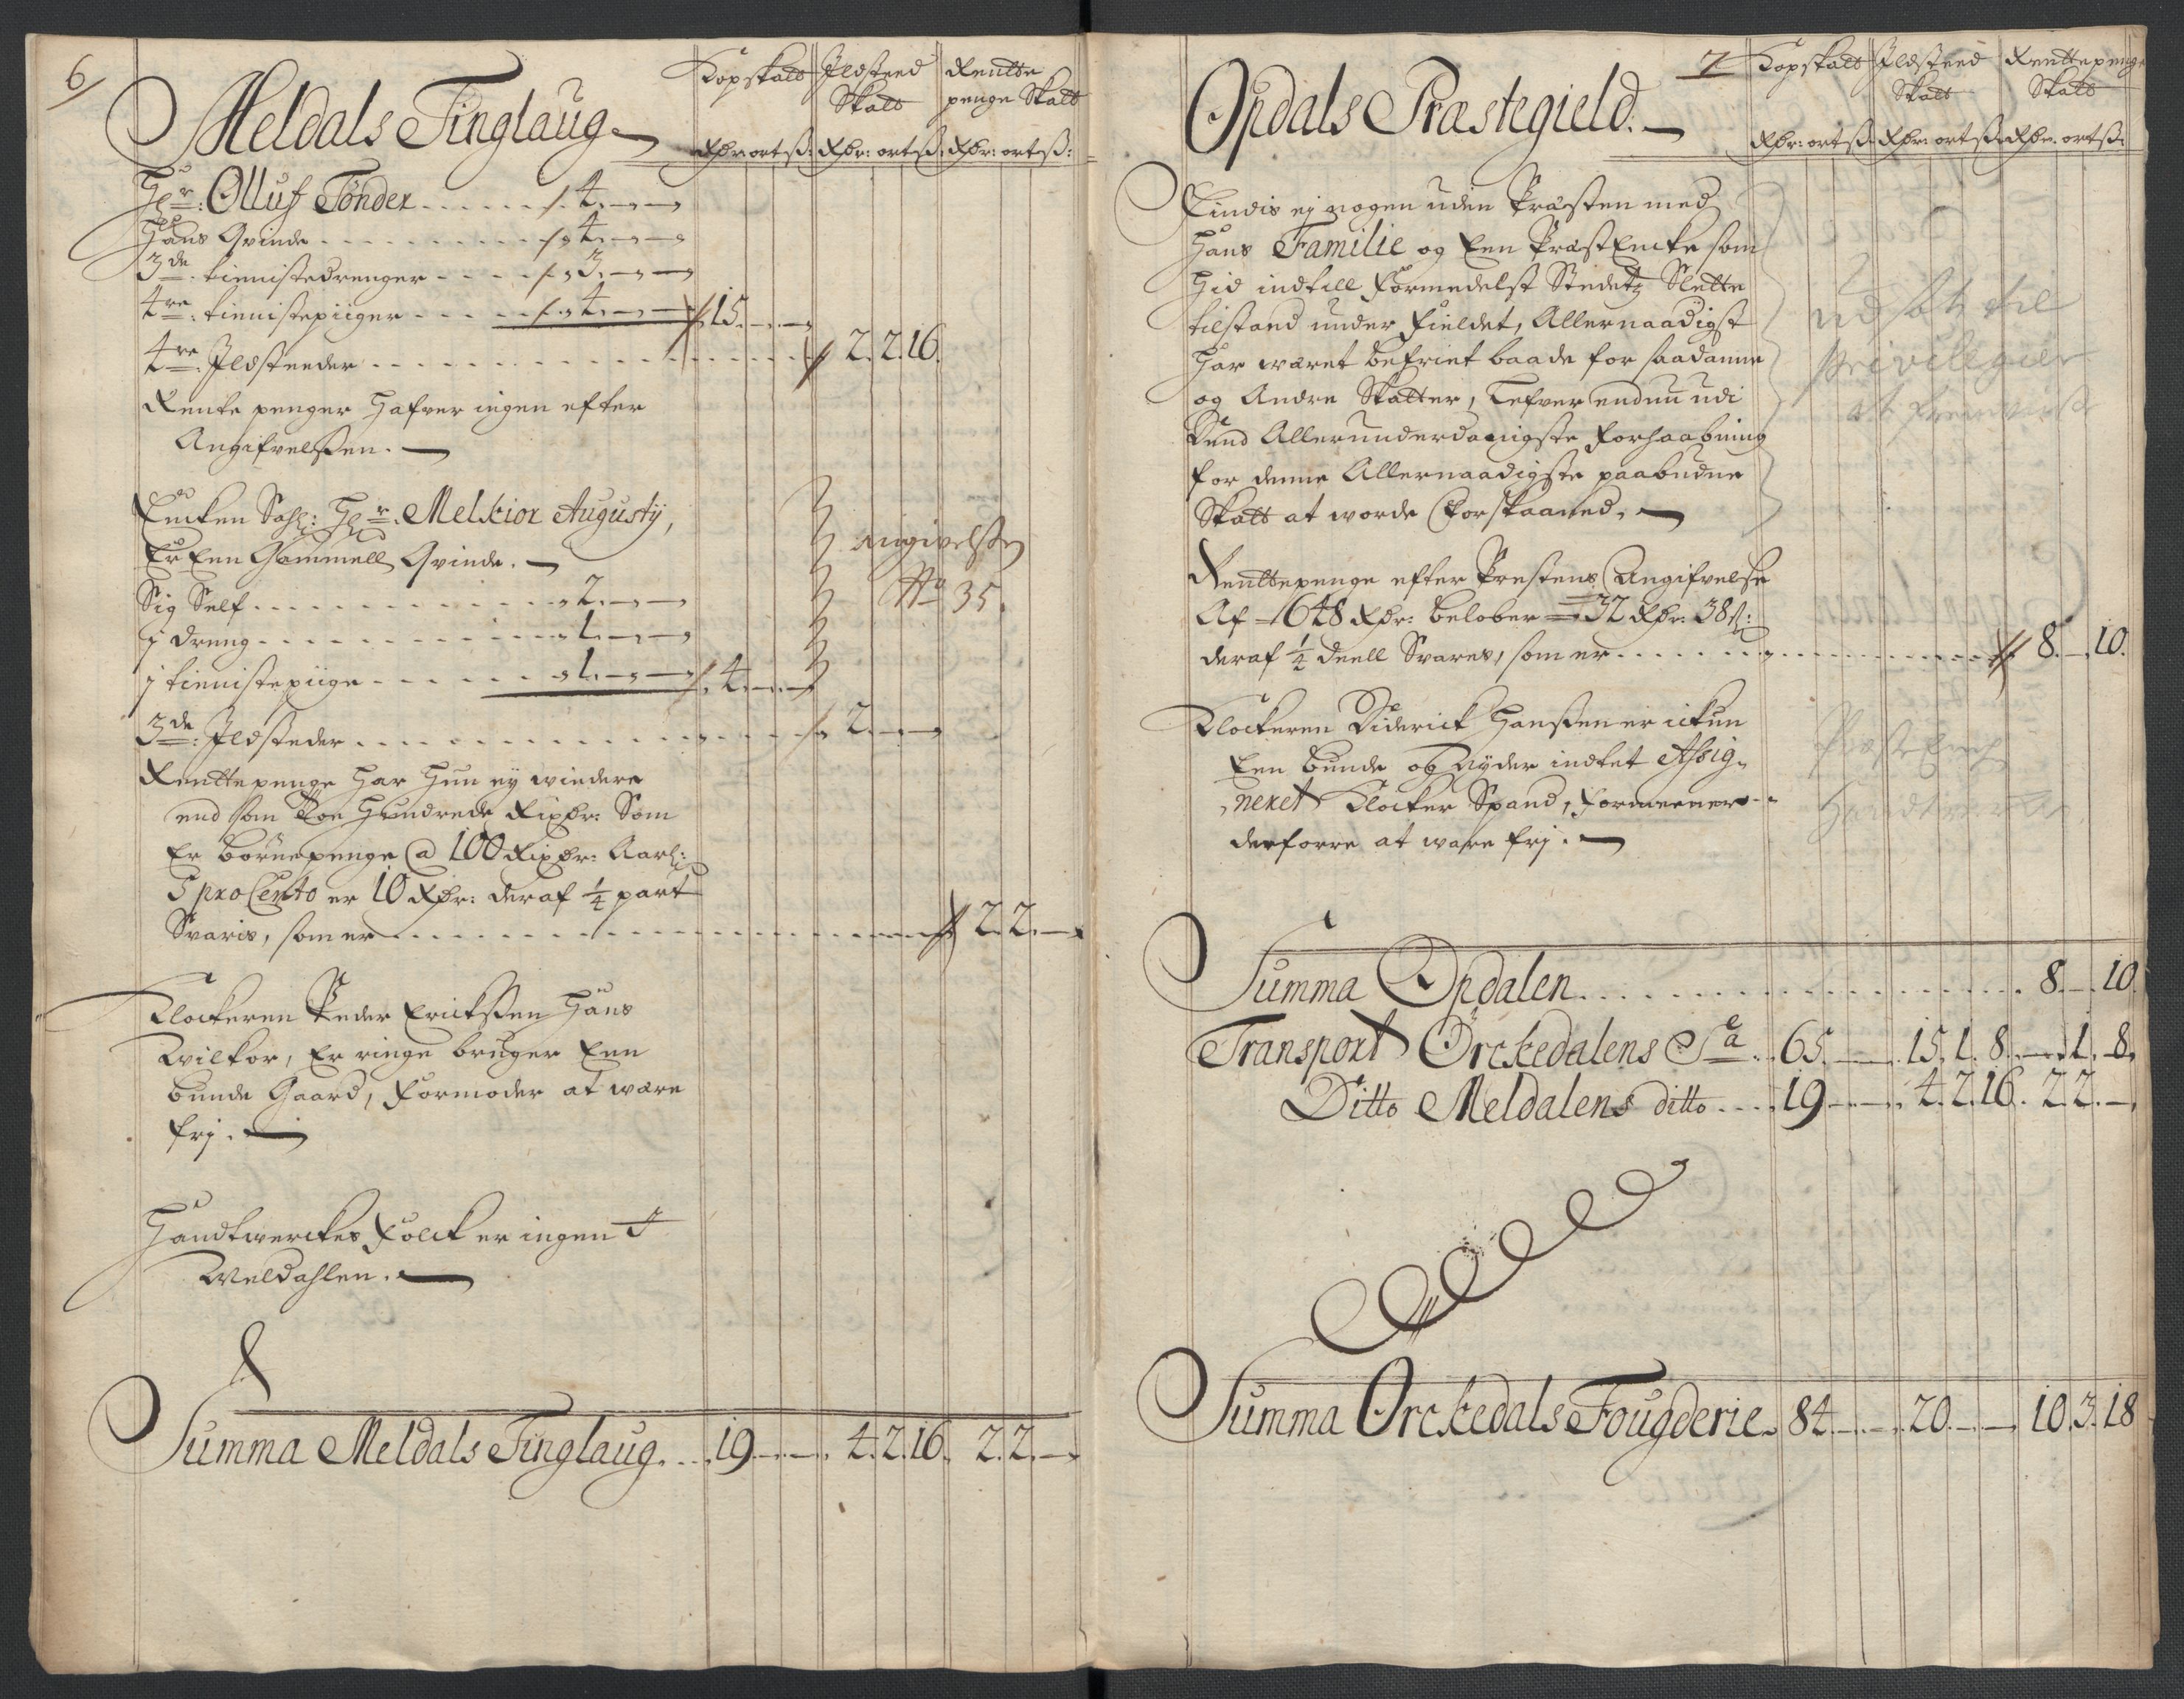 6
Meldals Tinglaug
Kopskatt Ildsteed Skatt Rentte penge Skatt
Rdr: ort ß: Rdr: ort ß: Rdr: ort ß:
Hr: Olluf Tønder . . . . . 4. – –
Hans Qvinde . . . . . 4. – –
3de tienistedrenger . . . . 3. – –
4re tienistepiiger . . . . 4. – – 15. – –
4re Ildsteeder . . . . . 2. 2. 16.
Rente penger hafver ingen efter
Angifvelßen.
Encken Sahl: Hr. Melkior Augustij,
Er Een Gammell Qvinde.
angivelßen
No 35.
Sig Self . . . . . 2. – –
1 dreng . . . . . 1. – –
1 tienistepiige . . . . . 1. – – 4. – –
3de Ildsteder . . . . . 2. – –
Renttepenge har hun ey widere
end som Toe Hundrede Rixdr: Som
Er børnepenge a 100 Rixdr: Aarl:
5 pro Cento er 10 Rdr: deraf 1/4 part
Svaris, som er . . . . . 2. 2. –
Klockeren Peder Erickßen Hans
Wilkor, Er ringe bruger Een
bunde Gaard, formoder at være
frj.
Handtwerckes Folck er ingen I
Meldahlen.
Summa Meldals Tinglaug . . . 19. – – 4. 2. 16. 2. 2. –
7
Opdals Præstegield.
Kopskatt Ildsteed Skatt Renttepenge Skatt
Rdr: ort ß: Rdr: ort ß: Rdr: ort ß:
Findis ej nogen uden Præsten med
Hans Familie og Een PræstEncke som
Hid indtill formedelst Stedetz Slette
tilstand under fieldet, Allernaadigst
har været befriet baade for saadanne
og Andre Skatter, Lefver endnu udi
Dend Allerunderdanigste forhaabning
for denne Allernaadigste paabudne
Skatt at worde forskaaned.
til
privilegier
Renttepenge efter Prestens Angifvelse
Af 648 Rdr: beløber 32 Rdr: 38 ß:
deraf 1/4 deell Svares, som er . . . . . 8. – 10.
Klockeren Diderick Hanßen er ickun
Een bunde og Nyder indtet Assig-
neret Klocker Spand, formeener
derforre at være frj.
Summa Opdalen . . . . . 8. – 10.
Transport Orckedalens Sa . . 65. – – 15. 1. 8. – 1. 8.
Ditto Meldalens ditto . . . 19. – – 4. 2. 16. 2. 2. –
Summa Orckedals Fougderie 84. – – 20. – – 10. 3. 18